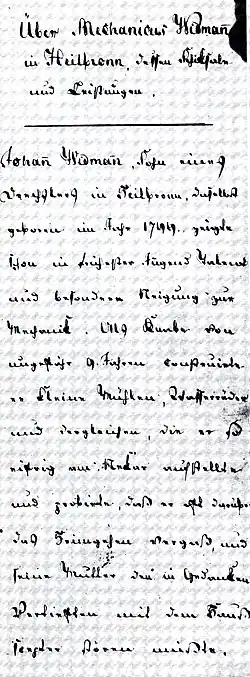 Über Mechanicus Widmañ
in Heilbronn, dessen Schicksale
und Leistungen.
Johañ Widman, Sohn eines
Drechslers in Heilbronn, daselbst
geboren im Jahr 1799. zeigte
schon in frühester Jugend Talent
und besondere Neigung zur
Mechanik. Als Knabe von
ungefähr 9. Jahren construirte
er kleine Mühlen, Wasserräder
und dergleichen, die er so
eifrig am Neckar aufstellte
und probirte, daß er oft darüber
das Heimgehen vergaß, und
seine Mutter den in Gedanken
Vertieften mit dem Haus
Zepter stören mußte.